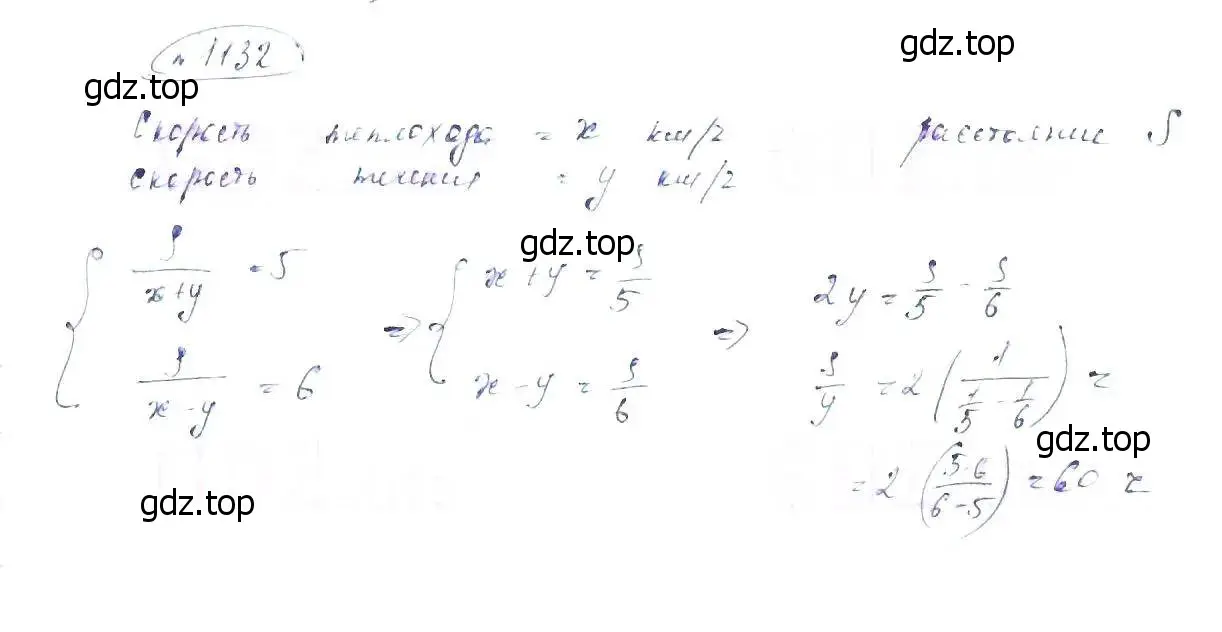 gdz.top
№ 1132
gdz.top
Скорость теплохода = x км/ч расстояние S
скорость течения = y км/ч
gdz.top
{ S/(x+y) = 5 => { x + y = S/5 => 2y = S/5 - S/6
S/(x-y) = 6 x - y = S/6 S/y = 2 (1/(1/5 - 1/6)) =
gdz.top
= 2 (5·6/(6-5)) = 60 ч
gdz.top